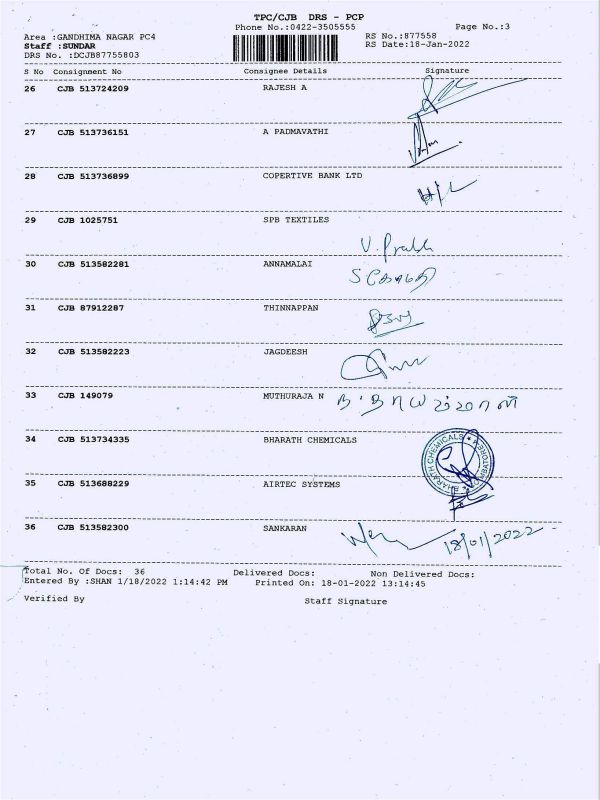 TPC/CJB DRS - PCP
Phone No.:0422-3505555 Page No.:3
Area :GANDHIMA NAGAR PC4 RS No.:877558
Staff :SUNDAR RS Date:18-Jan-2022
DRS No. :DCJB87755803
S No Consignment No Consignee Details Signature
26 CJB 513724209 RAJESH A
27 CJB 513736151 A PADMAVATHI
28 CJB 513736899 COPERTIVE BANK LTD
29 CJB 1025751 SPB TEXTILES
V. Prabh
30 CJB 513582281 ANNAMALAI
31 CJB 87912287 THINNAPPAN
32 CJB 513582223 JAGDEESH
33 CJB 149079 MUTHURAJA N
34 CJB 513734335 BHARATH CHEMICALS
BHARATH CHEMICALS * COIMBATORE *
35 CJB 513688229 AIRTEC SYSTEMS
36 CJB 513582300 SANKARAN
18/01/2022
Total No. Of Docs: 36 Delivered Docs: Non Delivered Docs:
Entered By :SHAN 1/18/2022 1:14:42 PM Printed On: 18-01-2022 13:14:45
Verified By Staff Signature